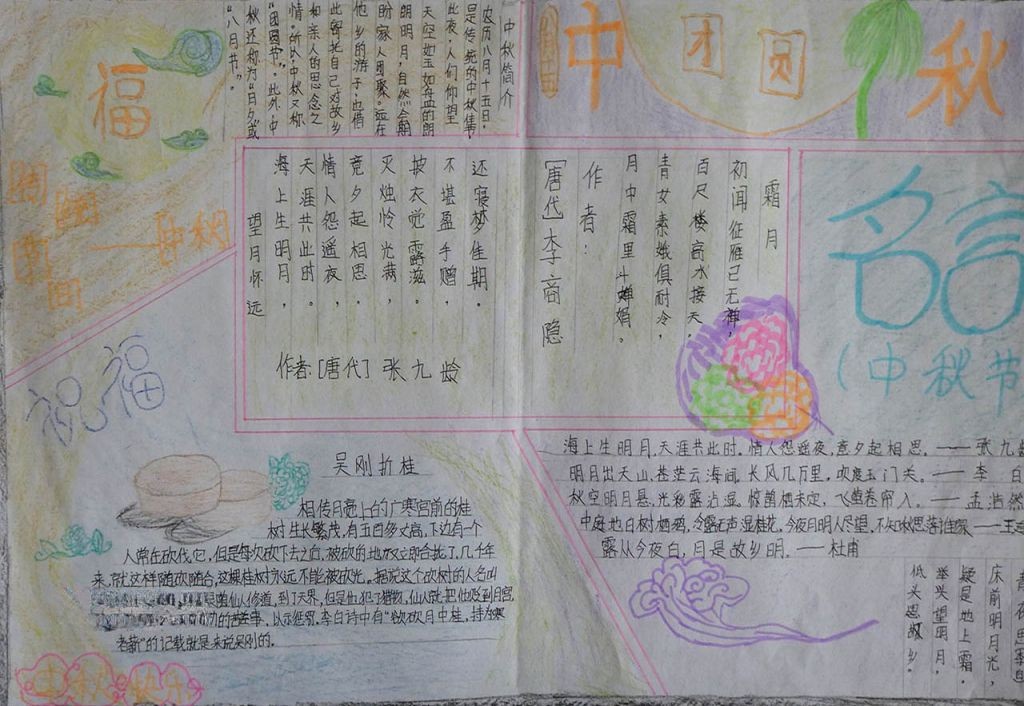 中秋
团圆
福
中秋简介
农历八月十五日，
是传统的中秋佳节
此夜，人们仰望
天空如玉如盘的朗
朗明月，自然会期
盼家人团聚。远在
他乡的游子，也借
此寄托自己对故乡
和亲人的思念之
情。所以，中秋又称
“团圆节”。此外，中
秋还称为“日夕”或
“八月节”。
霜月
初闻征雁已无蝉，
百尺楼高水接天，
青女素娥俱耐冷，
月中霜里斗婵娟。
作者：
[唐代]李商隐
望月怀远
海上生明月，
天涯共此时。
情人怨遥夜，
竟夕起相思。
灭烛怜光满，
披衣觉露滋。
不堪盈手赠，
还寝梦佳期。
作者：[唐代]张九龄
名言
（中秋节
祝福
吴刚折桂
相传月亮上的广寒宫前的桂
树生长繁茂，有五百多丈高，下边有一个
人常在砍伐它，但是每次砍下去之后，被砍的地方又立即合拢了，几千年
来，就这样随砍随合，这棵桂树永远不能被砍光。据说这个砍树的人名叫
跟仙人修道，到了天界，但是他犯了错误，仙人就把他贬到月宫
以示惩罚。李白诗中有“欲砍月中桂，持为寒
者薪”的记载就是来说吴刚的。
海上生明月，天涯共此时。情人怨遥夜，竟夕起相思。——张九龄
明月出天山，苍茫云海间，长风几万里，吹度玉门关。——李白
秋空明月悬，光彩露沾湿。惊鹊栖未定，飞萤卷帘入。——孟浩然
中庭地白树栖鸦，冷露无声湿桂花。今夜月明人尽望，不知秋思落谁家——王建
露从今夜白，月是故乡明。——杜甫
床前明月光，
疑是地上霜。
举头望明月，
低头思故乡。
中秋快乐